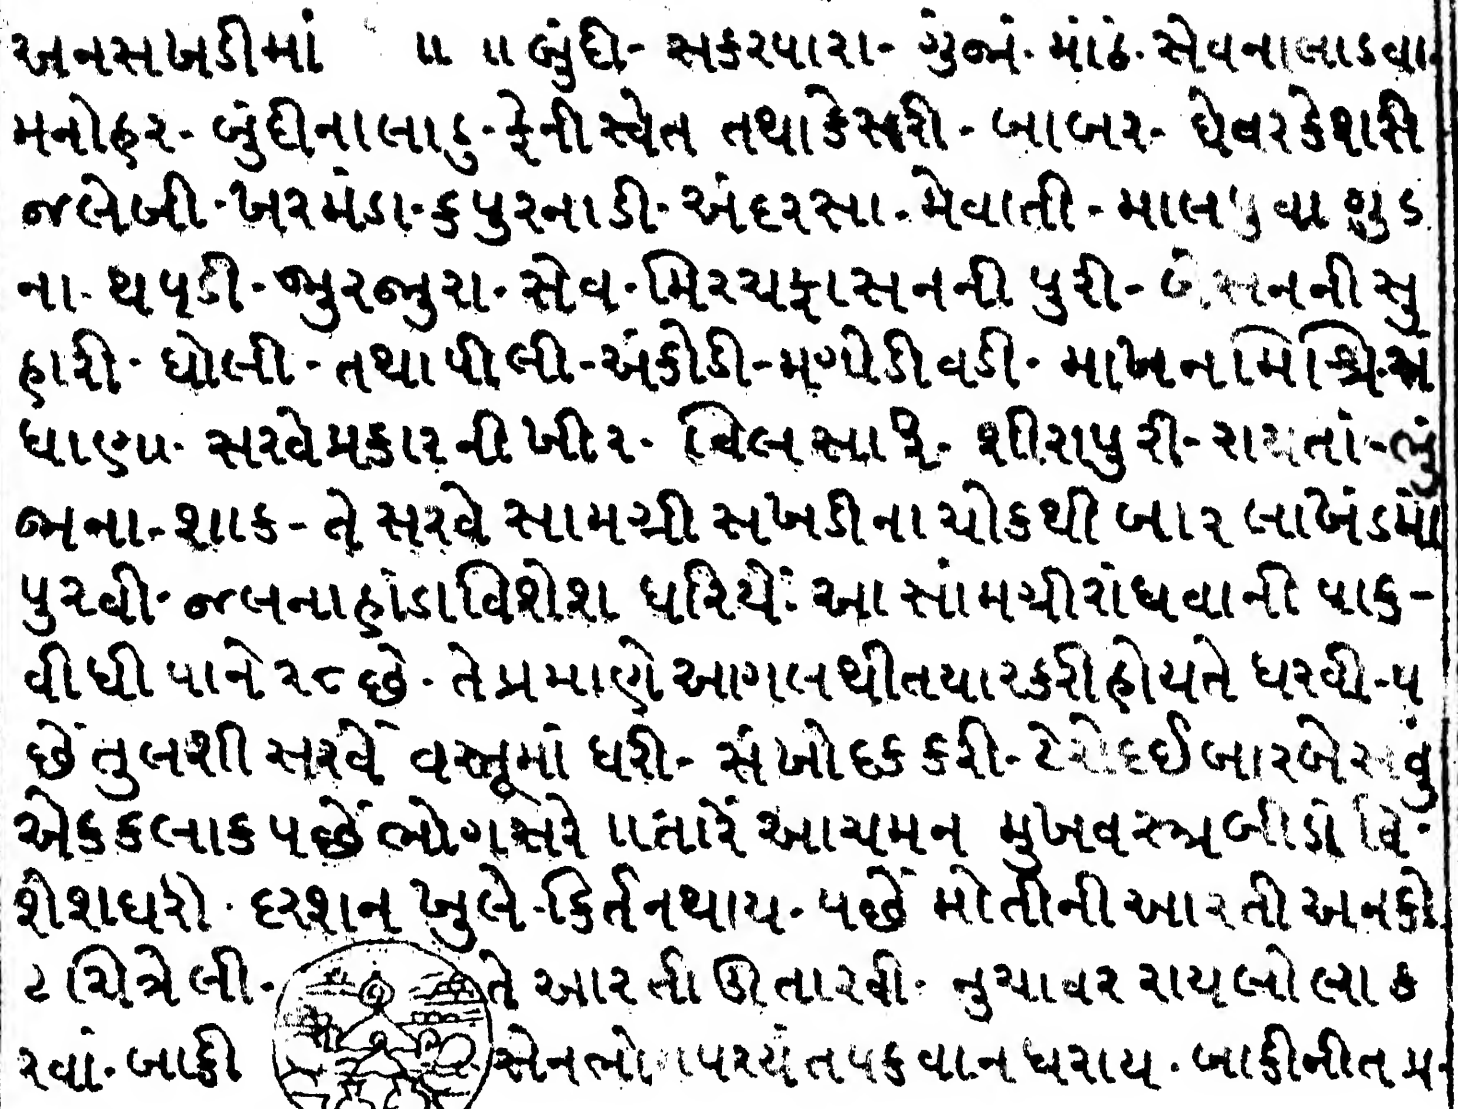 અનસખડીમાં ॥ ॥ બુંદી- સકરપારા- ગુંજાં- માંઠે- સેવનાલાડવા-
મનોહર- બુંદીનાલાડુ- ફેનીસ્વેત તથાકેસરી - બાબર- ઘેવરકેશરી
જલેબી- ખરમંડા- કપુરનાડી- અંદરસા- મેવાતી - માલપુવા ગુડ
ના- થપડી- ભુરભુરા- સેવ- મિરચફાસનની પુરી- બેસનનીસુ
હારી- ધોલી- તથાપીલી-અંકોડી-મગોડીવડી- માખનમિશ્રિઅ
ધાણા- સરવેપ્રકારનીખીર- વિલસારૂ- શીરાપુરી- રાયતાં-ભું
જાના- શાક- તે સરવે સામગ્રી સખડીનાચોકથી બાર લાખંડમાં
પુરવી- જલનાહાંડાવિશેશ ધરિયેં- આ સાંમગ્રીરાંધવાની પાક-
વીધી પાને ૨૮ છે- તેપ્રમાણે આગલથીતયારકરીહોયતે ધરવી-પ
છેં તુલશી સરવેં વસ્તૂમાં ધરી- સંખોદકકરી- ટેરોદઈબારબેસવું
એકકલાકપછેં ભોગસરે ॥તારેં આચમન મુખવસ્ત્રબીડાં વિ-
શેશધરો- દરશન ખુલે-કિર્તનથાય- પછેં મોતીનીઆરતી અનકો
ટ ચિત્રેલી- તે આરતી ઊતારવી- નુચાવર રાયલોલા ક
રવાં- બાકી સેનભોગપરયંતપકવાન ધરાય- બાકીનીત પ્ર-